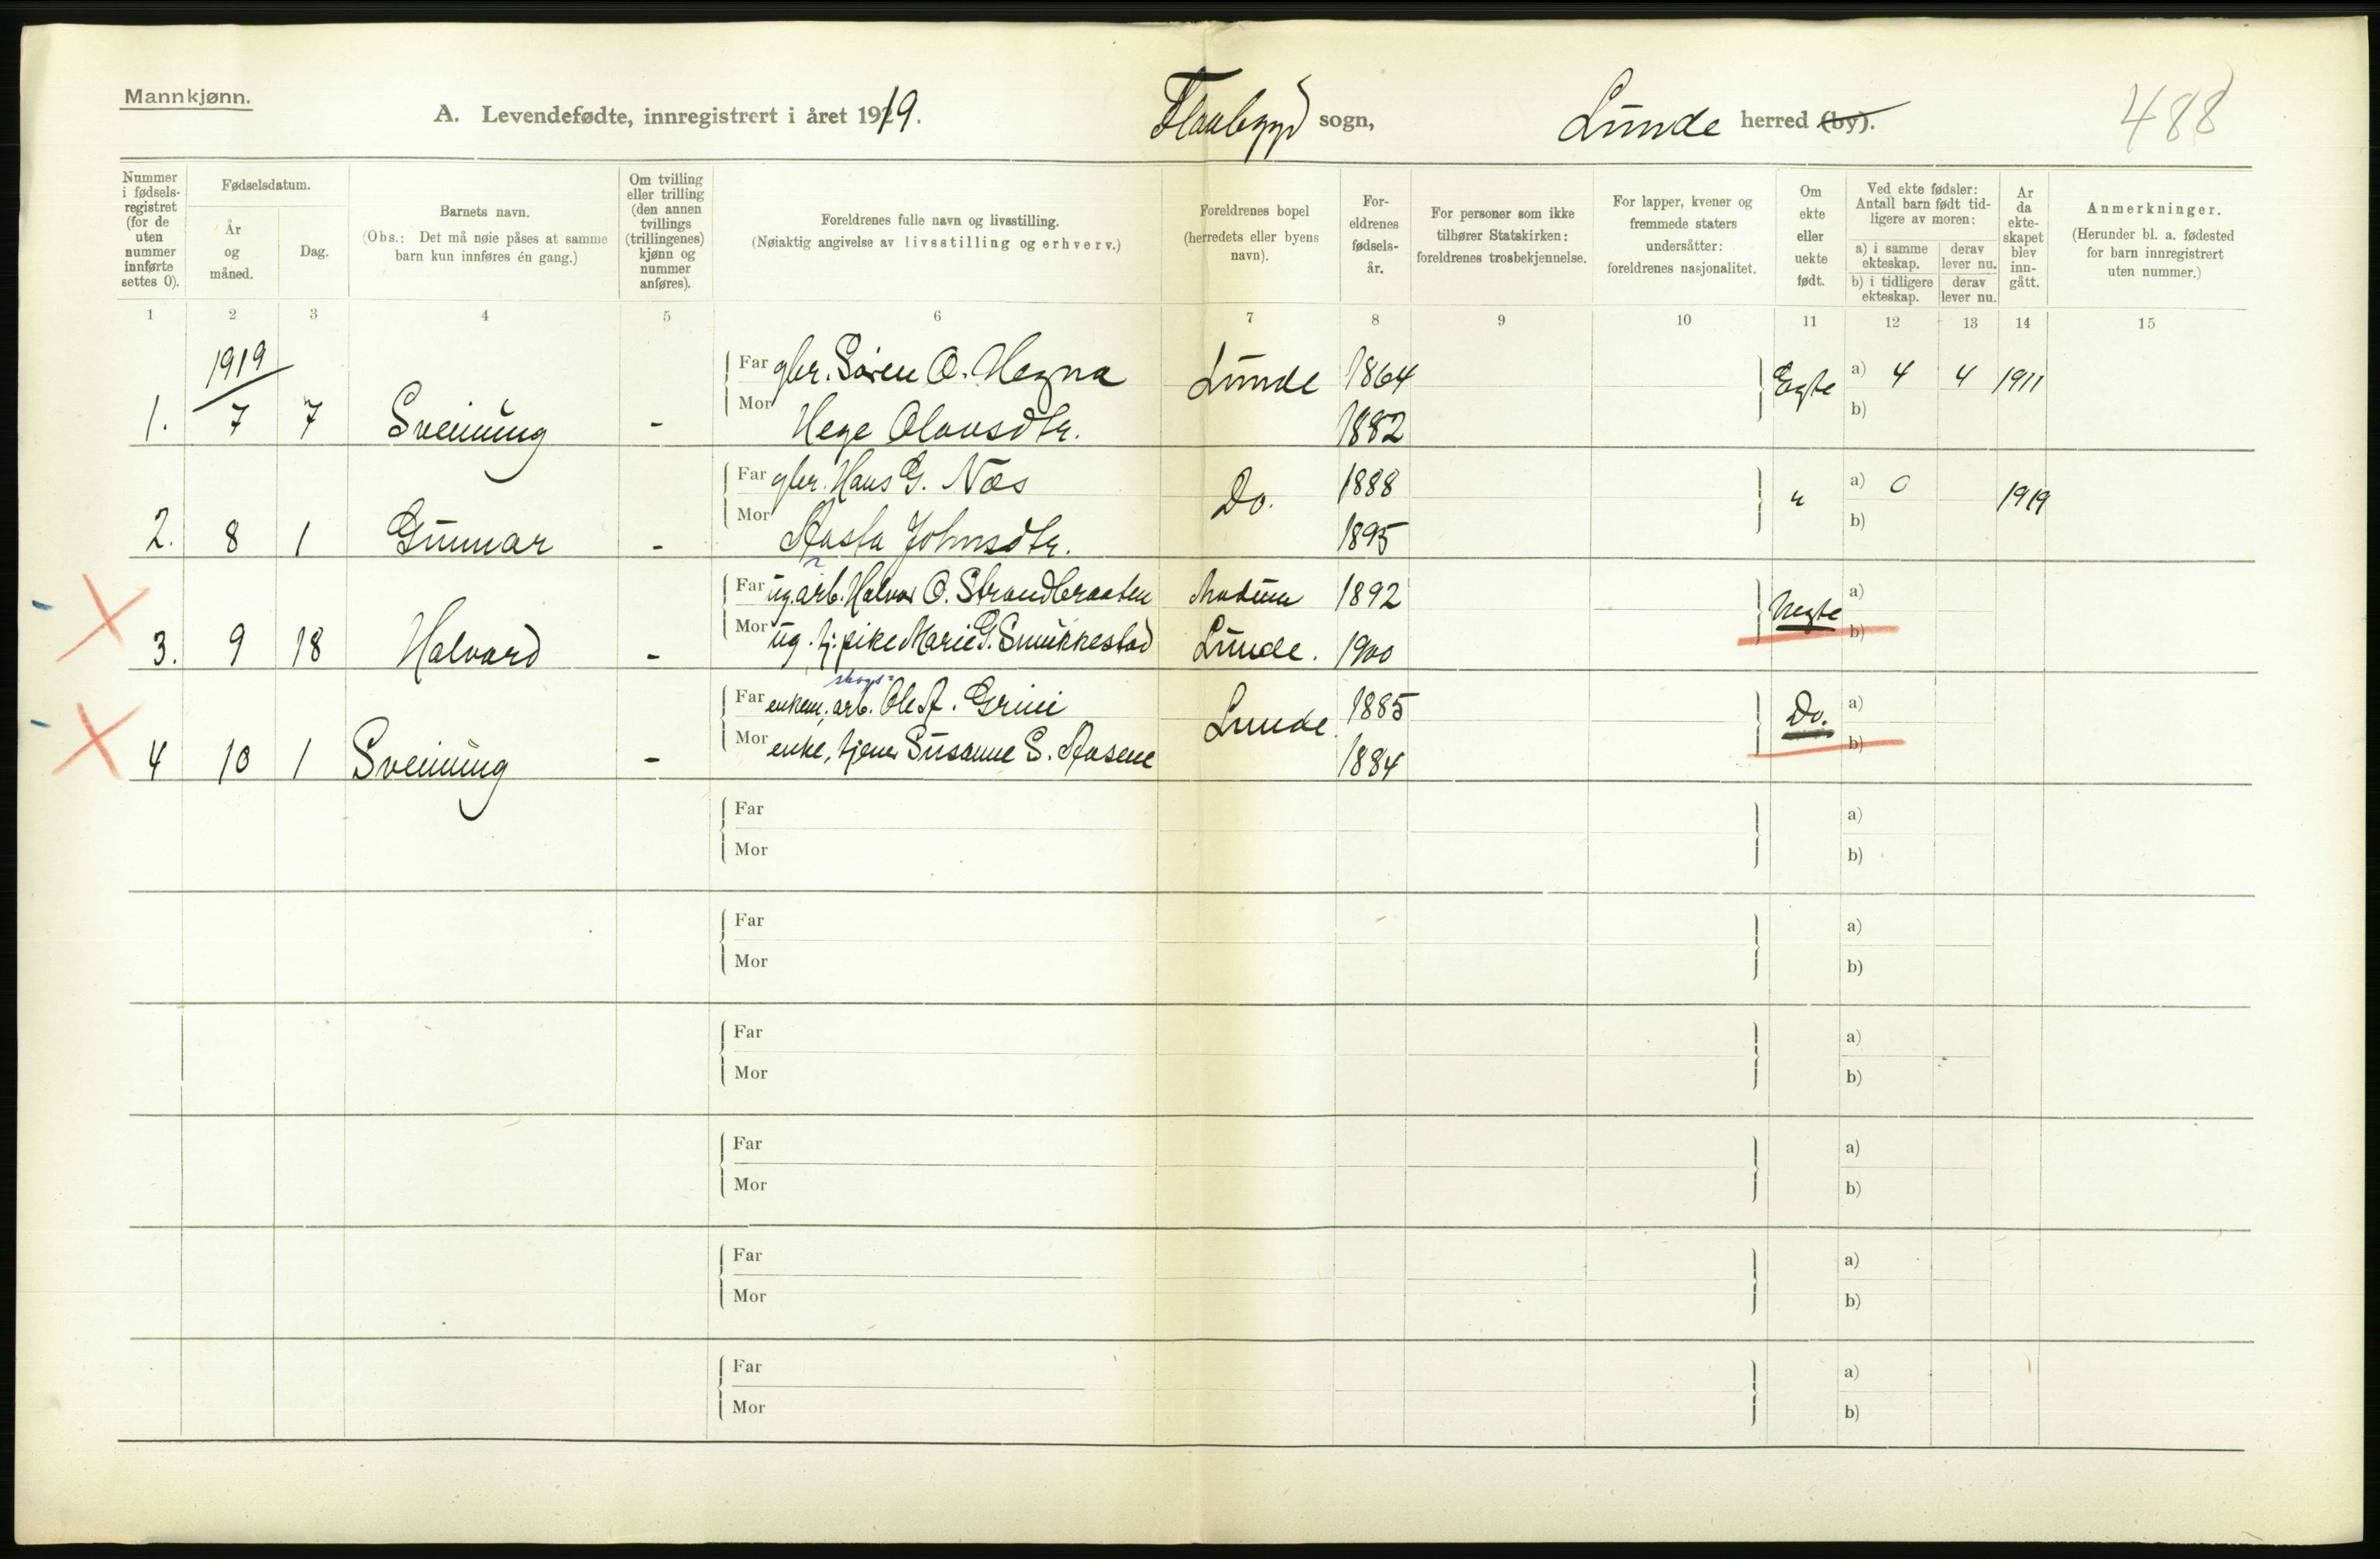 Mannkjønn.
A. Levendefødte, innregistrert i året 1919. Flaabygd sogn, Lunde herred (by). 488
Nummer i fødsels-registret (for de uten nummer innførte settes 0).
Fødselsdatum.
År og måned.
Dag.
Barnets navn.
(Obs.: Det må nøie påses at samme barn kun innføres én gang.)
Om tvilling eller trilling (den annen tvillings (trillingenes) kjønn og nummer anføres).
Foreldrenes fulle navn og livsstilling.
(Nøiaktig angivelse av livsstilling og erhverv.)
Foreldrenes bopel (herredets eller byens navn).
For-eldrenes fødsels-år.
For personer som ikke tilhører Statskirken: foreldrenes trosbekjennelse.
For lapper, kvener og fremmede staters undersåtter: foreldrenes nasjonalitet.
Om ekte eller uekte født.
Ved ekte fødsler: Antall barn født tid-ligere av moren:
a) i samme ekteskap. derav lever nu.
b) i tidligere ekteskap. derav lever nu.
Ar da ekte-skapet blev inn-gått.
Anmerkninger.
(Herunder bl. a. fødested for barn innregistrert uten nummer.)
1 2 3 4 5 6 7 8 9 10 11 12 13 14 15
1919
Far gbr. Søren O. Hegna Lunde 1864 Egte a) 4 4 1911
1. 7 7 Sveinung - Mor Hege Olavsdtr. 1882 b)
Far gbr. Hans G. Næs Do. 1888 " a) 0 1919
2. 8 1 Gunnar - Mor Aasta Johnsdtr. 1895 b)
Far ug. arb. Halvor O. Strandbraaten Modum 1892 Uegte a)
3. 9 18 Halvard - Mor ug. tj. pike Marie G. Smukkestad Lunde. 1900 b)
skogs=
Far enkem. arb. Ole A. Grini Lunde 1885 Do. a)
4 10 1 Sveinung - Mor enke, tjener Susanne S. Aasene 1884 b)
Far a)
Mor b)
Far a)
Mor b)
Far a)
Mor b)
Far a)
Mor b)
Far a)
Mor b)
Far a)
Mor b)